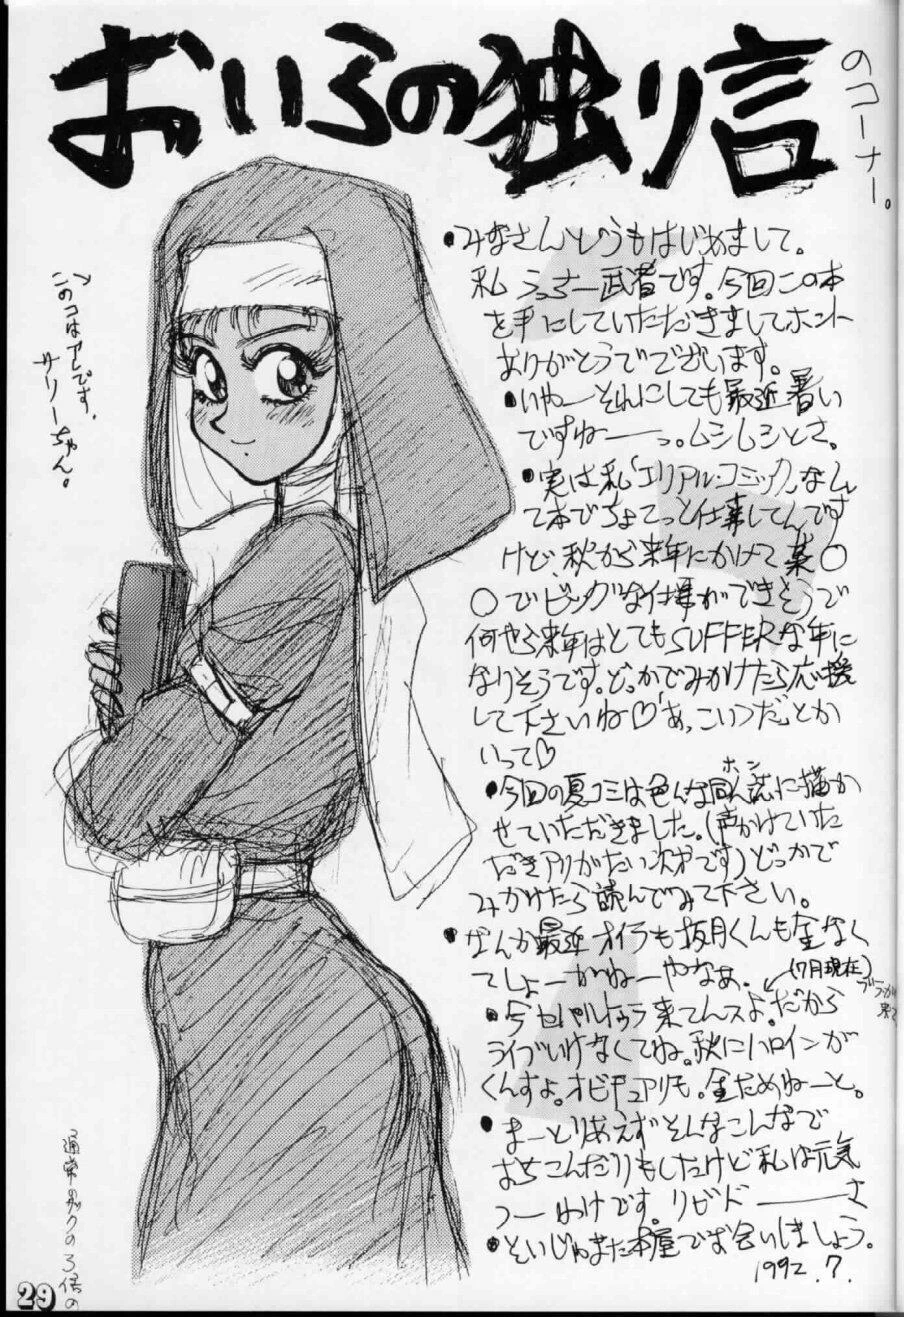 おいらの独り言
のコーナー。
・みなさんどうもはじめまして。
私 うっちー武者です。今回この本
を手にしていただきましてホント
ありがとうでございます。
・いやーそれにしても最近暑い
ですねーーっ。ムシムシとさ。
・実は私「エリアルコミック」なん
て本でちょてっと仕事してんです
けど、秋から来年にかけて某〇
〇でビッグな仕事ができそうで
何やら来年はとてもSUFFERな年に
なりそうです。どっかでみかけたら応援
して下さいね♡「あ、こいつだ」とか
いって♡
・今回の夏コミは色んな同人誌に描か
ホン
せていただきました。(声かけていた
だきアリがたい次第です)どっかで
みかけたら読んでみて下さい。
・なんか最近オイラも抜月くんも金なく
てしょーがねーやなあ。
(7月現在)
・今セパルトゥラ来てんスよ。だから
ライブいけなくてね。秋にハロインが
くんすよ。オビチュアリも。金ためねーと。
・まーとりあえずそんなこんなで
おちこんだりもしたけど私は元気
っーわけです。リビドーーーさ
・そいじゃまた本屋でお会いしましょう。
1992.7.
このコはアレです、
サリーちゃん。
通常のザクの3倍の
29